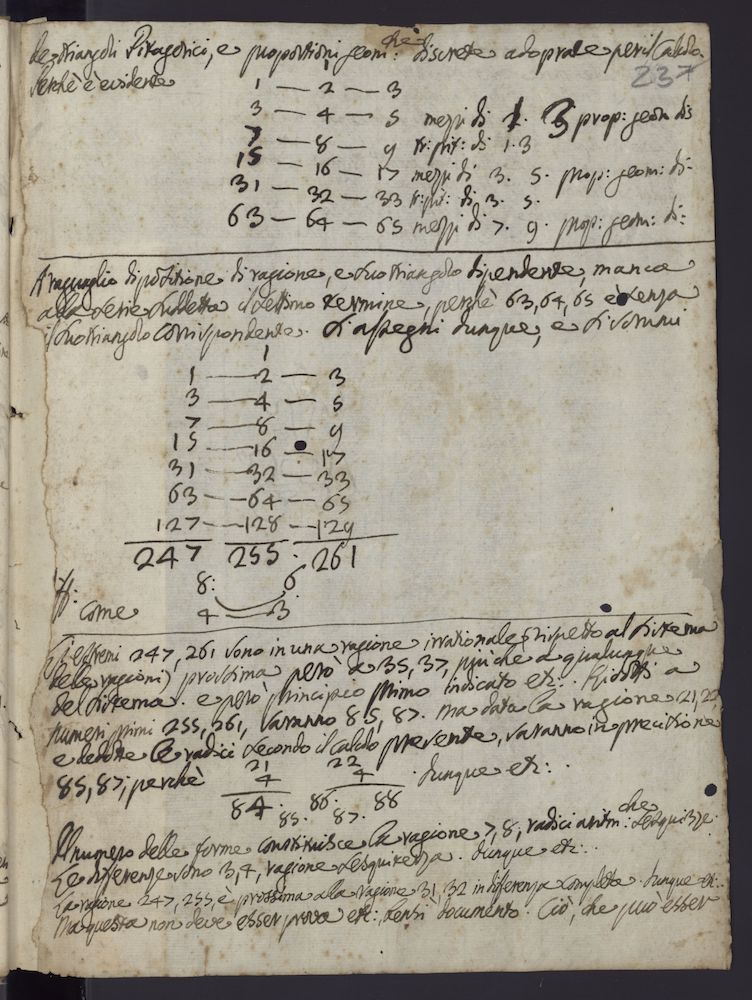 de triangoli Pitagorici, e proportioni geom:che discrete adoprate per il Calcolo.
237
Perchè è evidente
1 — 2 — 3
3 — 4 — 5 mezzi di 1. 3 prop: geom: dis
7 — 8 — 9 tr: pit: di 1. 3
15 — 16 — 17 mezzi di 3. 5. prop: geom: di:
31 — 32 — 33 tr: pit: di 3. 5.
63 — 64 — 65 mezzi di 7. 9. prop: geom: di:
A raguaglio di positione di ragione, e suo triangolo dipendente, manca
alla serie sudetta il settimo termine, perchè 63, 64, 65 è senza
il suo triangolo corrispondente. Si assegni dunque, e si sommi
1
1 — 2 — 3
3 — 4 — 5
7 — 8 — 9
15 — 16 — 17
31 — 32 — 33
63 — 64 — 65
127 — 128 — 129
247 255 . 261
8. 6
come 4 — 3
Gl'estremi 247, 261 sono in una ragione irrationale (rispetto al sistema
delle ragioni) prossima però a 35, 37, più che a qualunque
del sistema. e però principio primo indicato etc:. Ridotti a
numeri primi 255, 261, saranno 85, 87. Ma data la ragione 21, 22,
e dedotte le radici secondo il calcolo presente, saranno in precisione
85, 87; perchè
21 22
4 4 . dunque etc:.
84. 86. 88
85. 87.
Il numero delle forme constituisce la ragione 7, 8, radici aritm:che sesquisett:
Le differenze sono 3, 4, ragione sesquiterza. dunque etc:.
La ragione 247, 255, è prossima alla ragione 31, 32 in differenza completa. dunque etc:.
Ma questa non deve esser prova etc:, bensì documento. Ciò, che può esser